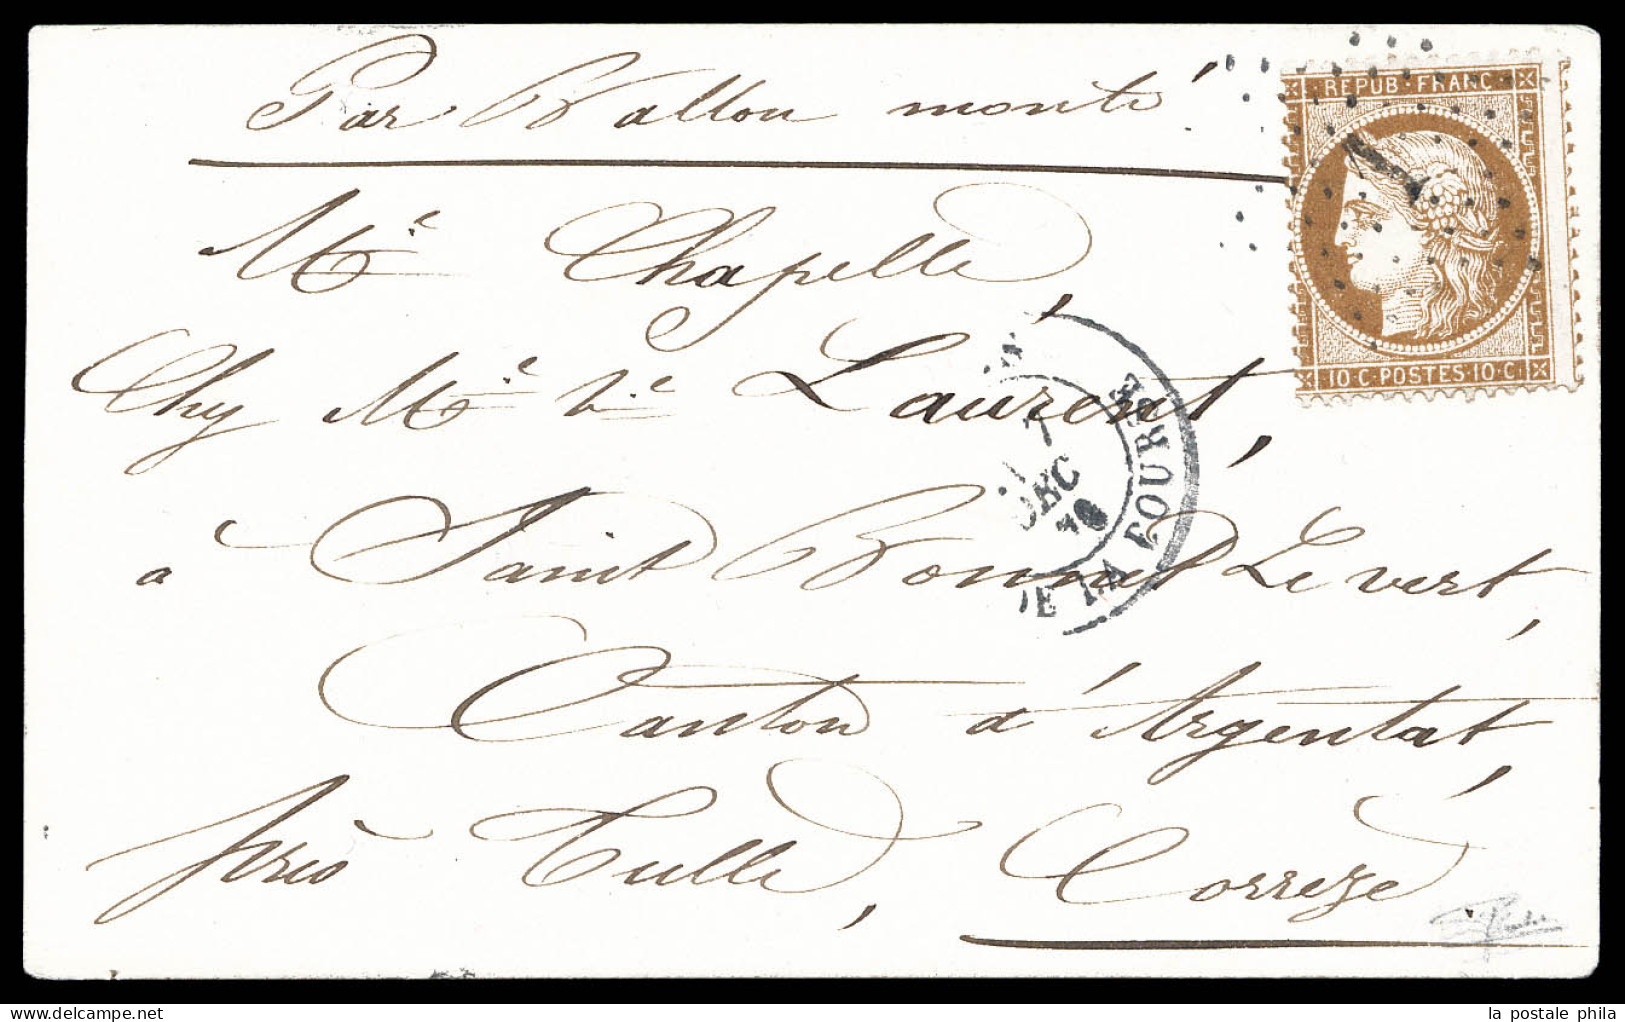 Par Ballon monté
REPUB·FRANC
1
10 C·POSTES 10 C
Me Chapelle,
Chez Me Ve Laurent,
7
DEC
70
DE LA BOURSE
à Saint Bonnet Le vert,
Canton d'Argentat,
près Tulle, Corrèze
la postale phila